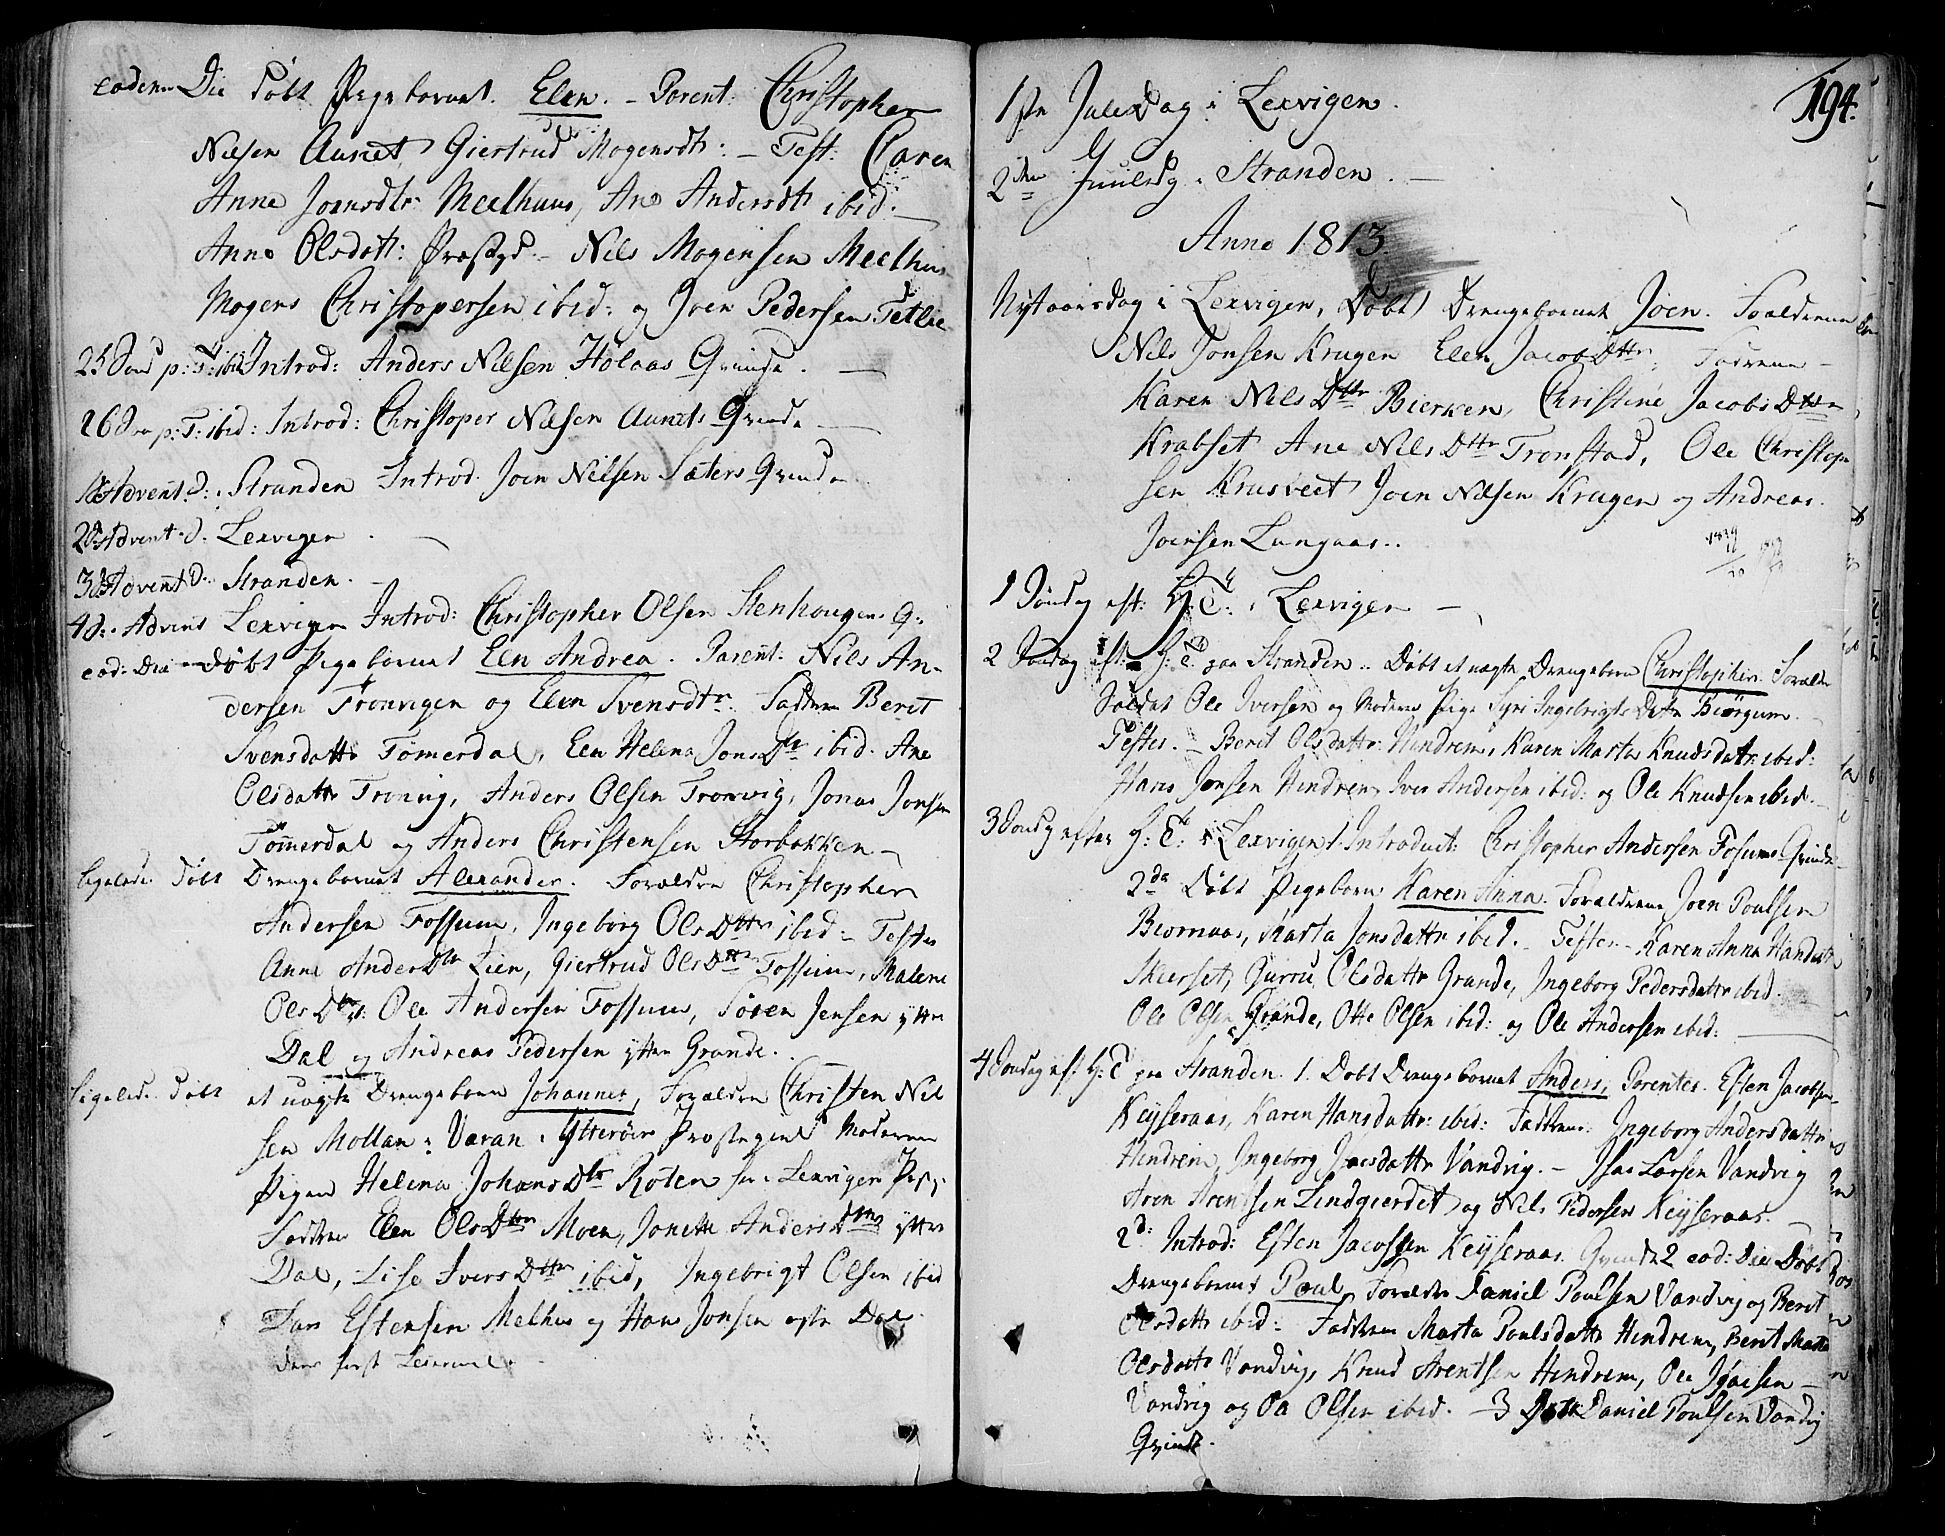 eodem Die døbt Pigebarnet. Elen. – Parent: Christopher
Nilsen Aunet Giertrud Mogensdt: – Test: Caren
Anne Joensdtr: Meelhuus, Ane Andersdt ibid. –
Anne Olsdatt: Præstgd. – Nils Mogensen Meelhuus
Mogens Christopersen ibid: og Joen Pedersen Tetlie
25 Sønd p: T: ibid Introd: Anders Nilsen Holaas Qvinde. –
26 Søn p: T: ibid: Introd: Christoper Nilsen Aunets Qvinde –
1ste Advent: S: i Stranden Introd. Joen Nilsen Sæters Qvinde
2d Advent. S. Lexvigen. –
3d Advent S. Stranden. –
4 S. Advent Lexvigen Introd: Christopher Olsen Stenhougen Q:
eod: Die – døbt Pigebarnet Elen Andrea. Parent: Nils An-
dersen Tronvigen og Elen Svensdtr. Faddere Berit
Svensdattr Tømerdal, Elen Helena JonsDtr ibid. Ane
Olsdattr Tronvig, Anders Olsen Tronvig, Jonas Jonsen
Tømmerdal og Anders Christensen Storbakken –
ligelede døbt Drengebarnet Alexander. Forældre Christopher
Andersen Fossum, Ingeborg OlsDttr ibid – Testes
Anne AndersDtr Lien, Giertrud OlsDttr Fossum, Malene
OlsDtr Ole Andersen Fossum, Søren Jensen yttre
Dal og Andreas Pedersen yttre Grande.
ligelede døbt et uægte Drengebarn Johannes, Forældre Christen Nil
sen Mollan i Væran i Ytterøen Præstegield Moderen
Pigen Helena JohansDtr Roten her i Lexvigen
Faddere Elen OlsDttr Moen, Joneth AndersDttr yttre
Dal, Lise IversDttr ibid, Ingebrigt Olsen ibid
Lars Estensen Melhus og Hans Jonsen øvre Dal.
deres første Leiermaal.
194.
1ste JuleDag i Lexvigen.
2den Juuledg i Stranden. –
Anno 1813
Nytaarsdag i Lexvigen, Døbt Drengebarnet Joen. Forældrene
Nils Jonsen Krugen Elen JacobsDttr, Fadrene –
Karen NilsDttr Bierken, Christine JacobsDttr,
Krabset Ane NilsDttr Tronstad, Ole Christop
sen Krusveet Joen Nilsen Krugen og Andreas
Joensen Lungaas.
1 Søndag eft: H: T: i Lexvigen –
2 Søndag eft: H: T: paa Stranden. Døbt et uægte Drengebarn Christopher. Forældr
Soldat Ole Iversen og Moderen Pige Syri Ingebrigts Datr Biørgum
Testes. – Berit Olsdattr: Hindrem, Karen Marta Knudsdatr: ibid:
Hans Jonsen Hindrem Iver Andersen ibid: og Ole Knudsen ibid. –
3 Søndg efter H: T: i Lexvigen 1. Introduct: Christopher Andersen Fosums Qvinde
2de Døbt Pigebarn Karen Anna. Forældrene Joen Poulsen
Biornaas, Marta Jonsdattr ibid. – Testes – Karen Anna Hansdtr
Skierset, Gurru Olsdattr Grande, Ingeborg Pedersdattr ibid.
Ole Olsen Grande, Otte Olsen ibid: og Ole Andersen ibid:
4 Søndag eft H: T paa Stranden. 1. Døbt Drengebarnet Anders, Parentes. Esten Jacobsen
Keyseraas, Karen Hansdattr: ibid: Faddrene: Ingeborg Andersdattr
Hindrem, Ingeborg Isacsdattr Vandvig. – Isac Larsen Vandvig
Aren Arentsen Lindgierdet og Nils Pedersen Keyseraas.
2d: Introd: Esten Jacobsen Keyseraas Qvinde 2 eod: Die Døbt
Drengebarnet Poul Forældre Daniel Poulsen Vandvig og Berit
Olsdattr ibid: Faddrene Marta Poulsdattr Hindrem, Berit Marta
Olsdattr Vandvig, Knud Arentsen Hindrem, Ole Isacsen –
Vandvig og Oa Olsen ibid. – 3 Daniel Poulsen Vandvig
Qvinde.